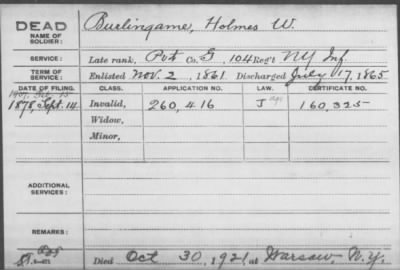 DEAD
NAME OF SOLDIER: Burlingame, Holmes W.
SERVICE: Late rank, Pvt Co. G, 104 Reg't NY Inf.
TERM OF SERVICE: Enlisted Nov. 2, 1861 Discharged July 17, 1865
DATE OF FILING. CLASS. APPLICATION NO. LAW. CERTIFICATE NO.
1878, Sept. 14 Invalid, 260,416 J 160,325
Widow,
Minor,
ADDITIONAL SERVICES:
REMARKS:
Died Oct 30, 1921, at Warsaw, N.Y.